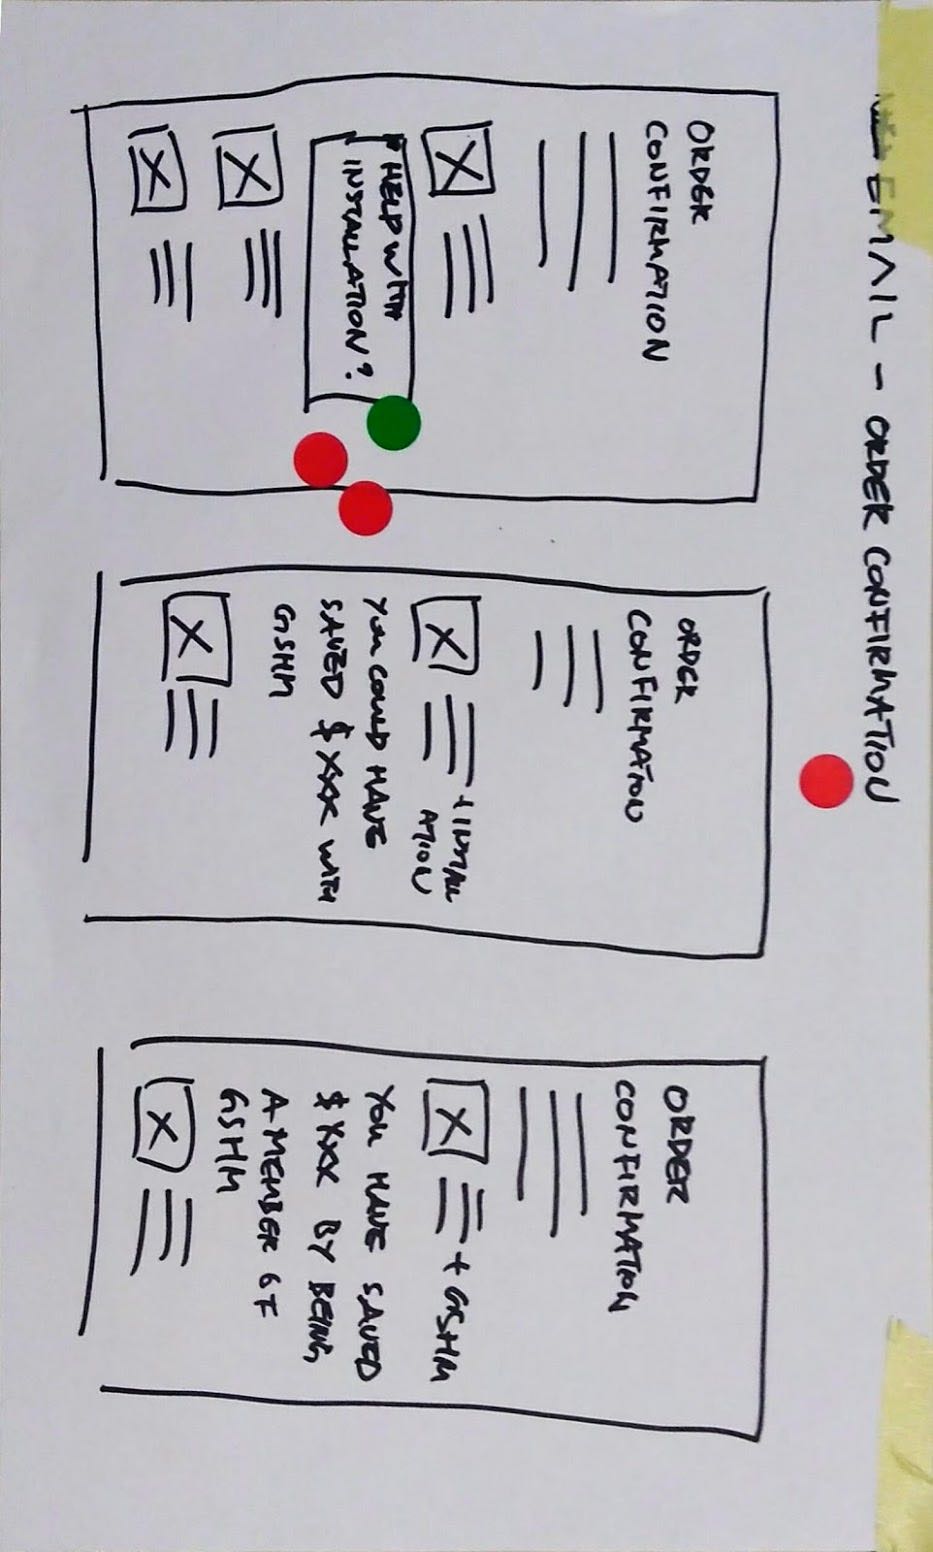 EMAIL - ORDER CONFIRMATION
ORDER
CONFIRMATION
HELP WITH
INSTALLATION?
ORDER
CONFIRMATION
+ INSTALL
ATION
YOU COULD HAVE
SAVED $XXX WITH
GSHM
ORDER
CONFIRMATION
+ GSHM
YOU HAVE SAVED
$XXX BY BEING
A MEMBER OF
GSHM